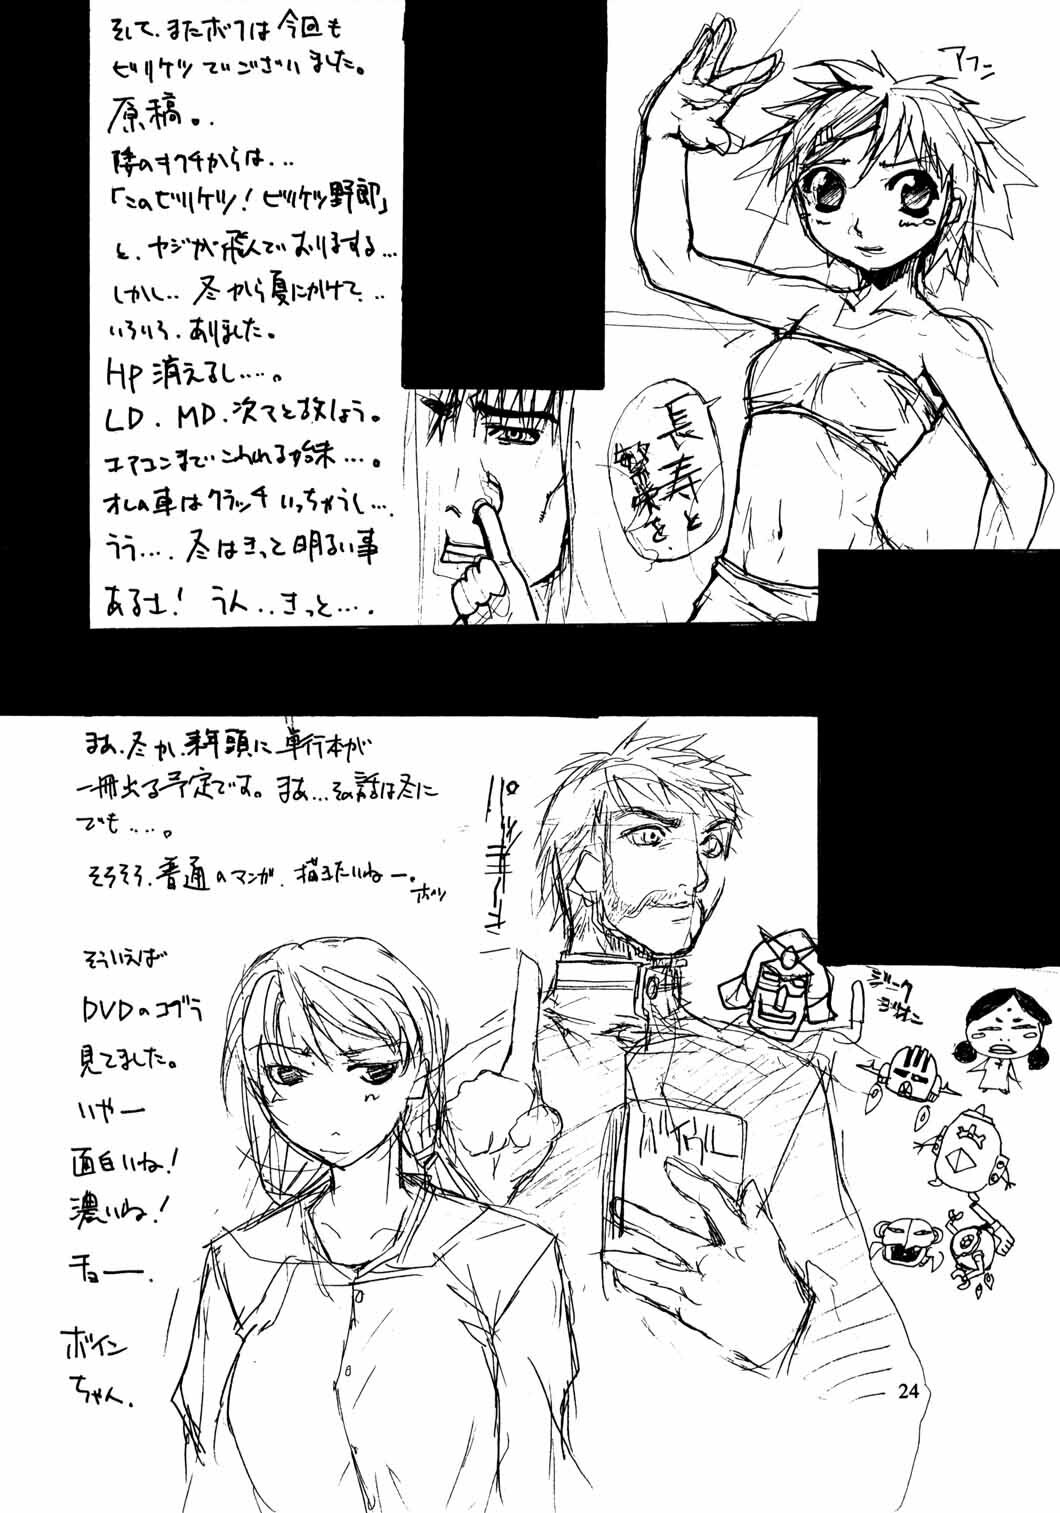 そして、またボクは今回も
ビリケツでございました。
原稿。.
隣のキクチからは...
「このビリケツ!ビリケツ野郎」
と、ヤジが飛んでおりまする...
しかし..冬から夏にかけて...
いろいろ、ありました。
HP消えるし.....。
LD、MD、次々と故しょう。
エアコンまでこわれる始末....。
オレの車はクラッチいっちゃうし....
うう....、冬はきっと明るい事
あるさ!うん..きっと....。
アフン
長寿と
繁栄を
まあ、冬か、来年頭に単行本が
一冊出る予定です。まあ...その話は冬に
でも....。
そろそろ、普通のマンガ、描きたいねー。
ボソッ
そういえば
DVDのコブラ
見てました。
いやー
面白いね!
濃いね!
チョー.
ボイン
ちゃん.
バイブル
ジーク
ヨリオン
24